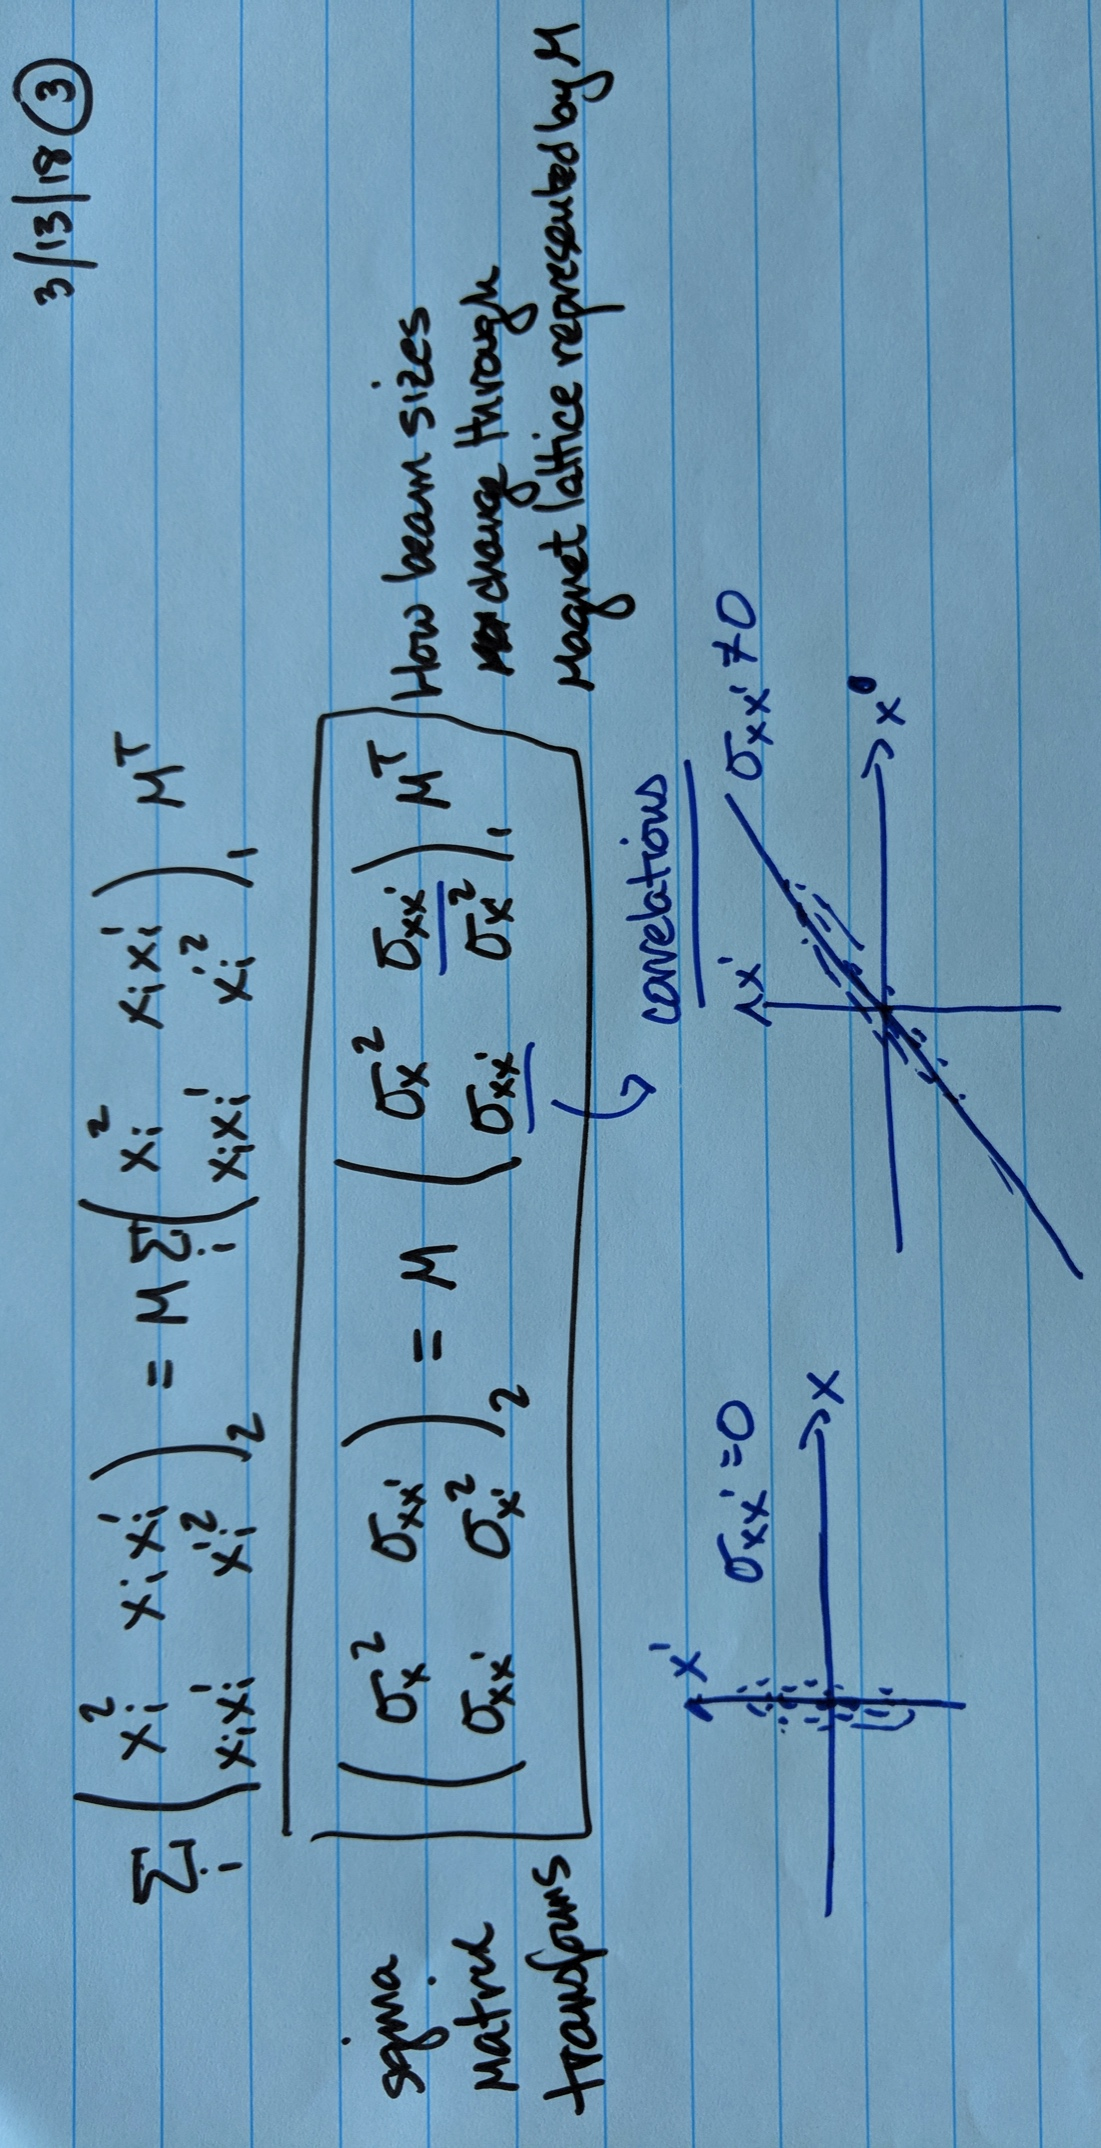 3/13/18 ③
∑ᵢ ( xᵢ² xᵢxᵢ' ; xᵢxᵢ' xᵢ'² )₂ = M ∑ᵢ ( xᵢ² xᵢxᵢ' ; xᵢxᵢ' xᵢ'² )₁ Mᵀ
sigma
Matrix
transforms
( σₓ² σₓₓ' ; σₓₓ' σₓ'² )₂ = M ( σₓ² σₓₓ' ; σₓₓ' σₓ'² )₁ Mᵀ
How beam sizes
change through
Magnet lattice represented by M
correlations
x'
σₓₓ' = 0
x
x'
σₓₓ' ≠ 0
x